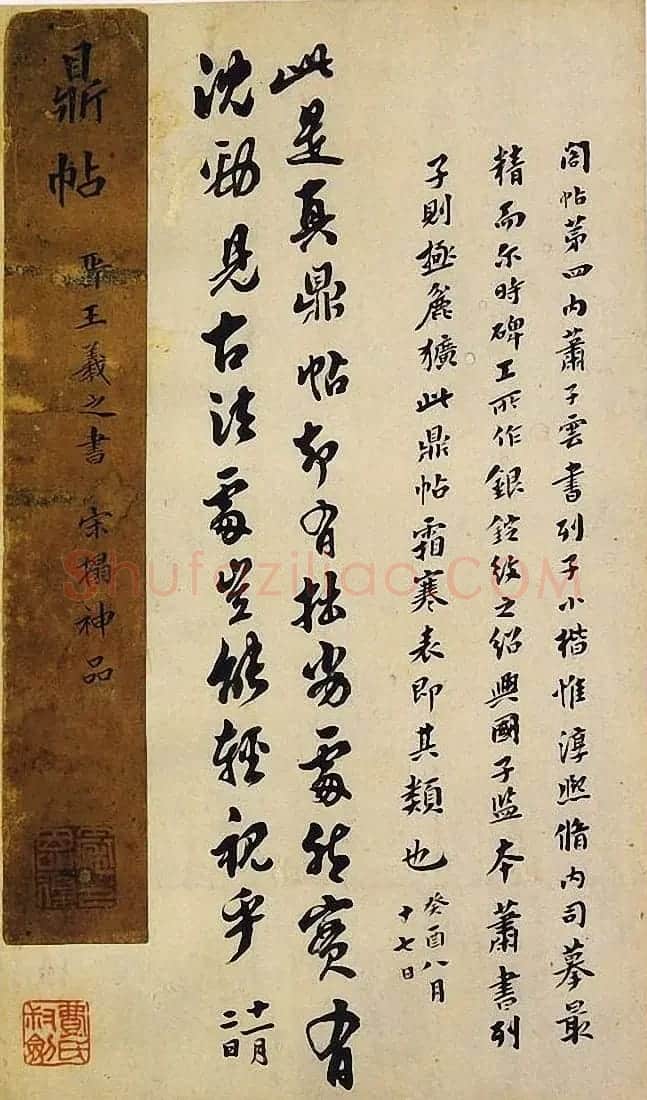 閣帖第四內蕭子雲書列子小楷惟淳熙脩內司摹最
精而尔時碑工所作銀鋌紋之紹興國子監本蕭書列
子則極麄獷此鼎帖霜寒表即其類也
癸酉八月
十七日
此是真鼎帖却有拙劣處然實有
沈勁見古法處豈能輕視乎
十一月
二日
鼎帖
晉王羲之書 宋搨神品
費氏
Shufaziliao.COM